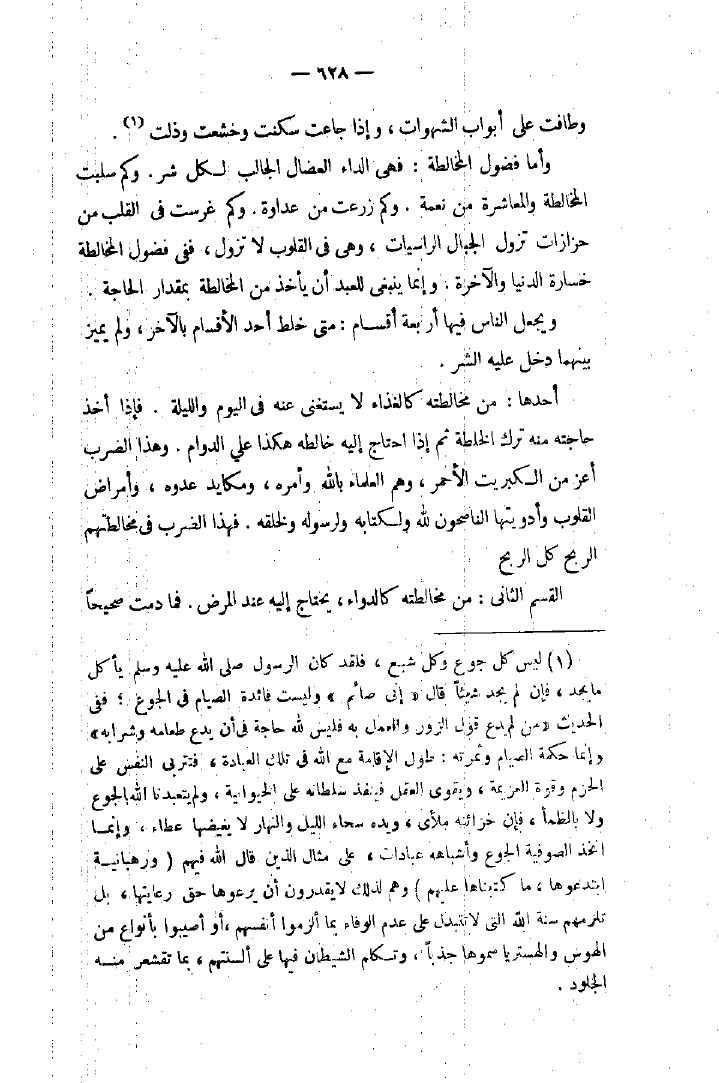 — ٦٢٨ —
وطافت على أبواب الشهوات ، وإذا جاعت سكنت وخشعت وذلت (١) .
وأما فضول المخالطة : فهى الداء العضال الجالب لكل شر . وكم سلبت
المخالطة والمعاشرة من نعمة . وكم زرعت من عداوة . وكم غرست فى القلب من
حزازات تزول الجبال الراسيات ، وهى فى القلوب لا تزول ، ففى فضول المخالطة
خسارة الدنيا والآخرة . وإنما ينبغى للعبد أن يأخذ من المخالطة بمقدار الحاجة .
ويجعل الناس فيها أربعة أقسام : متى خلط أحد الأقسام بالآخر ، ولم يميز
بينهما دخل عليه الشر .
أحدها : من مخالطته كالغذاء لا يستغنى عنه فى اليوم والليلة . فإذا أخذ
حاجته منه ترك الخلطة ثم إذا احتاج إليه خالطه هكذا علي الدوام . وهذا الضرب
أعز من الكبريت الأحمر ، وهم العلماء بالله وأمره ، ومكايد عدوه ، وأمراض
القلوب وأدويتها الناصحون لله ولكتابه ولرسوله ولخلقه . فهذا الضرب فى مخالطتهم
الربح كل الربح
القسم الثانى : من مخالطته كالدواء ، يحتاج إليه عند المرض . فما دمت صحيحاً
(١) ليس كل جوع وكل شبع ، فلقد كان الرسول صلى الله عليه وسلم يأكل
مايجد ، فإن لم يجد شيئاً قال « إنى صائم » وليست فائدة الصيام فى الجوع ؛ ففى
الحديث «من لم يدع قول الزور والعمل به فليس لله حاجة فى أن يدع طعامه وشرابه»
وإنما حكمة الصيام وثمرته : طول الإقامة مع الله فى تلك العبادة ، فتتربى النفس على
الحزم وقوة العزيمة ، ويقوى العقل فينفذ سلطانه على الحيوانية ، ولم يتعبدنا الله بالجوع
ولا بالظمأ ، فإن خزائنه ملأى ، ويده سحاء الليل والنهار لا يغيضها عطاء ، وإنما
اتخذ الصوفية الجوع وأشباهه عبادات ، على مثال الذين قال الله فيهم ( ورهبانية
ابتدعوها ، ما كتبناها عليهم ) وهم لذلك لايقدرون أن يرعوها حق رعايتها ، بل
تلزمهم سنة الله التى لاتتبدل على عدم الوفاء بما ألزموا أنفسهم ،أو أصيبوا بأنواع من
الهوس والهستريا سموها جذباً ، وتكلم الشيطان فيها على ألسنتهم ، بما تقشعر منه
الجلود .